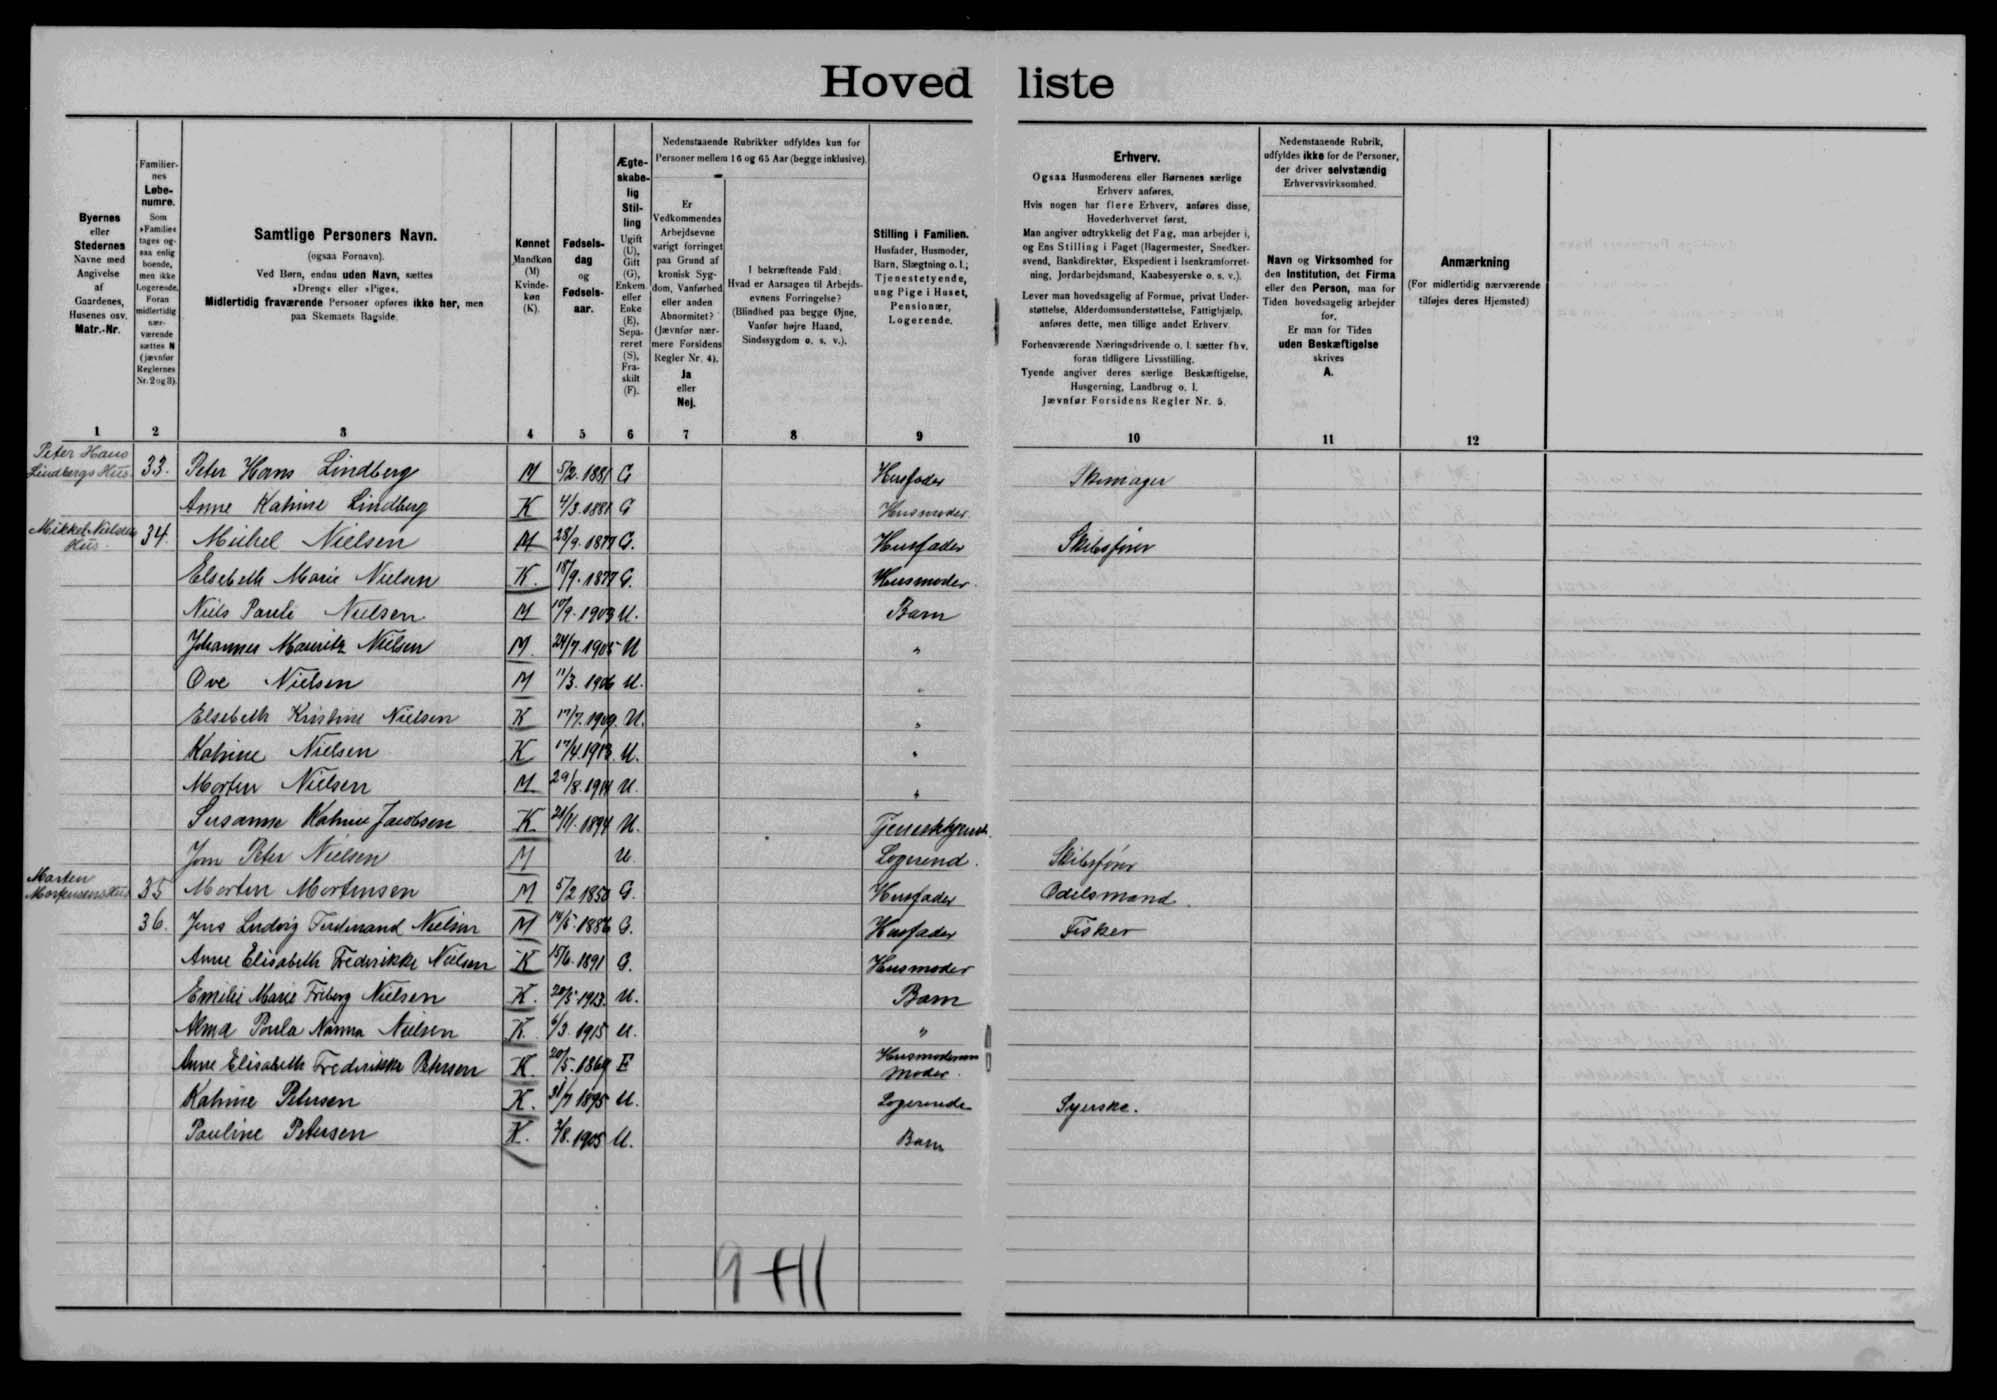 Hoved liste
Byernes
eller
Stedernes
Navne med
Angivelse
af
Gaardenes,
Husenes osv.
Matr.-Nr.
Familier-
nes
Løbe-
numre.
Som
»Familie«
tages og-
saa enlig
boende,
men ikke
Logerende.
Foran
midlertidig
nær-
værende
sættes N
(jævnfør
Reglernes
Nr. 2 og 3).
Samtlige Personers Navn.
(ogsaa Fornavn).
Ved Børn, endnu uden Navn, sættes
»Dreng« eller »Pige«.
Midlertidig fraværende Personer opføres ikke her, men
paa Skemaets Bagside.
Kønnet
Mandkøn
(M)
Kvinde-
køn
(K).
Fødsels-
dag
og
Fødsels-
aar.
Ægte-
skabe-
lig
Stil-
ling
Ugift
(U),
Gift
(G),
Enkem.
eller
Enke
(E),
Sepa-
reret
(S),
Fra-
skilt
(F).
Nedenstaaende Rubrikker udfyldes kun for
Personer mellem 16 og 65 Aar (begge inklusive).
Er
Vedkommendes
Arbejdsevne
varigt forringet
paa Grund af
kronisk Syg-
dom, Vanførhed
eller anden
Abnormitet?
(Jævnfør nær-
mere Forsidens
Regler Nr. 4).
Ja
eller
Nej.
I bekræftende Fald:
Hvad er Aarsagen til Arbejds-
evnens Forringelse?
(Blindhed paa begge Øjne,
Vanfør højre Haand,
Sindssygdom o. s. v.).
Stilling i Familien.
Husfader, Husmoder,
Barn, Slægtning o. l.;
Tjenestetyende,
ung Pige i Huset,
Pensionær,
Logerende.
Erhverv.
Ogsaa Husmoderens eller Børnenes særlige
Erhverv anføres.
Hvis nogen har flere Erhverv, anføres disse,
Hovederhvervet først.
Man angiver udtrykkelig det Fag, man arbejder i,
og Ens Stilling i Faget (Bagermester, Snedker-
svend, Bankdirektør, Ekspedient i Isenkramforret-
ning, Jordarbejdsmand, Kaabesyerske o. s. v.).
Lever man hovedsagelig af Formue, privat Under-
støttelse, Alderdomsunderstøttelse, Fattighjælp,
anføres dette, men tillige andet Erhverv.
Forhenværende Næringsdrivende o. l. sætter fhv.
foran tidligere Livsstilling.
Tyende angiver deres særlige Beskæftigelse,
Husgerning, Landbrug o. l.
Jævnfør Forsidens Regler Nr. 5.
Nedenstaaende Rubrik,
udfyldes ikke for de Personer,
der driver selvstændig
Erhvervsvirksomhed.
Navn og Virksomhed for
den Institution, det Firma
eller den Person, man for
Tiden hovedsagelig arbejder
for.
Er man for Tiden
uden Beskæftigelse
skrives
A.
Anmærkning
(For midlertidig nærværende
tilføjes deres Hjemsted)
1 2 3 4 5 6 7 8 9 10 11 12
Peter Hans
Lindbergs Hus 33. Peter Hans Lindberg M 5/2. 1881 G Husfader
Anne Katrine Lindberg K 4/3. 1881 G Husmoder
Mikkel Nielsens
Hus. 34. Michel Nielsen M 28/9. 1877 G. Husfader Skibsfører
Elsebeth Marie Nielsen K. 18/9. 1877 G. Husmoder.
Niels Pauli Nielsen M 10/9. 1903 U. Barn
Johannes Mauritz Nielsen M. 24/7. 1905 U "
Ove Nielsen M 11/3. 1906 U. "
Elsebeth Kristine Nielsen K 17/7. 1909. U. "
Katrine Nielsen K 17/4. 1913. U. "
Morten Nielsen M 29/8. 1914 U. "
Susanne Katrine Jacobsen K 1894 U.
Jom Peter Nielsen M U. Logerend. Skibsfører
Morten
Mortensens Hus 35 Morten Mortensen M 5/2 1850 G. Husfader Odelsmand.
36. Jens Ludvig Ferdinand Nielsen M 14/5. 1886 G. Husfader Fisker
Anne Elisabeth Frederikke Nielsen K 15/6. 1891 G. Husmoder
Emilie Marie Friberg Nielsen K. 20/5 1913. U. Barn
Alma Paula Nanna Nielsen K. 6/3. 1915 U. "
Anne Elisabeth Frederikke Petersen K. 20/5. 1869 E Husmoderens
Moder.
Katrine Petersen K. 31/7 1895 U. Logerende Syerske.
Pauline Petersen K. 2/8. 1905 U. Barn
9+11